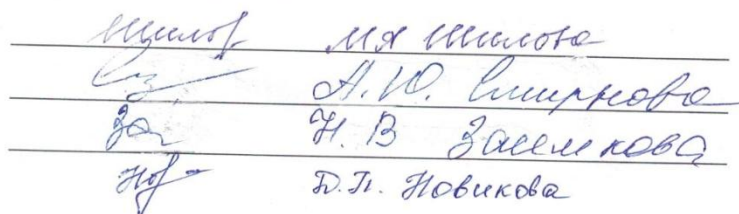 Шилов М Я Шилова
А.Ю. Смирнова
За Н.В Заемкова
Нов Д.П. Новикова